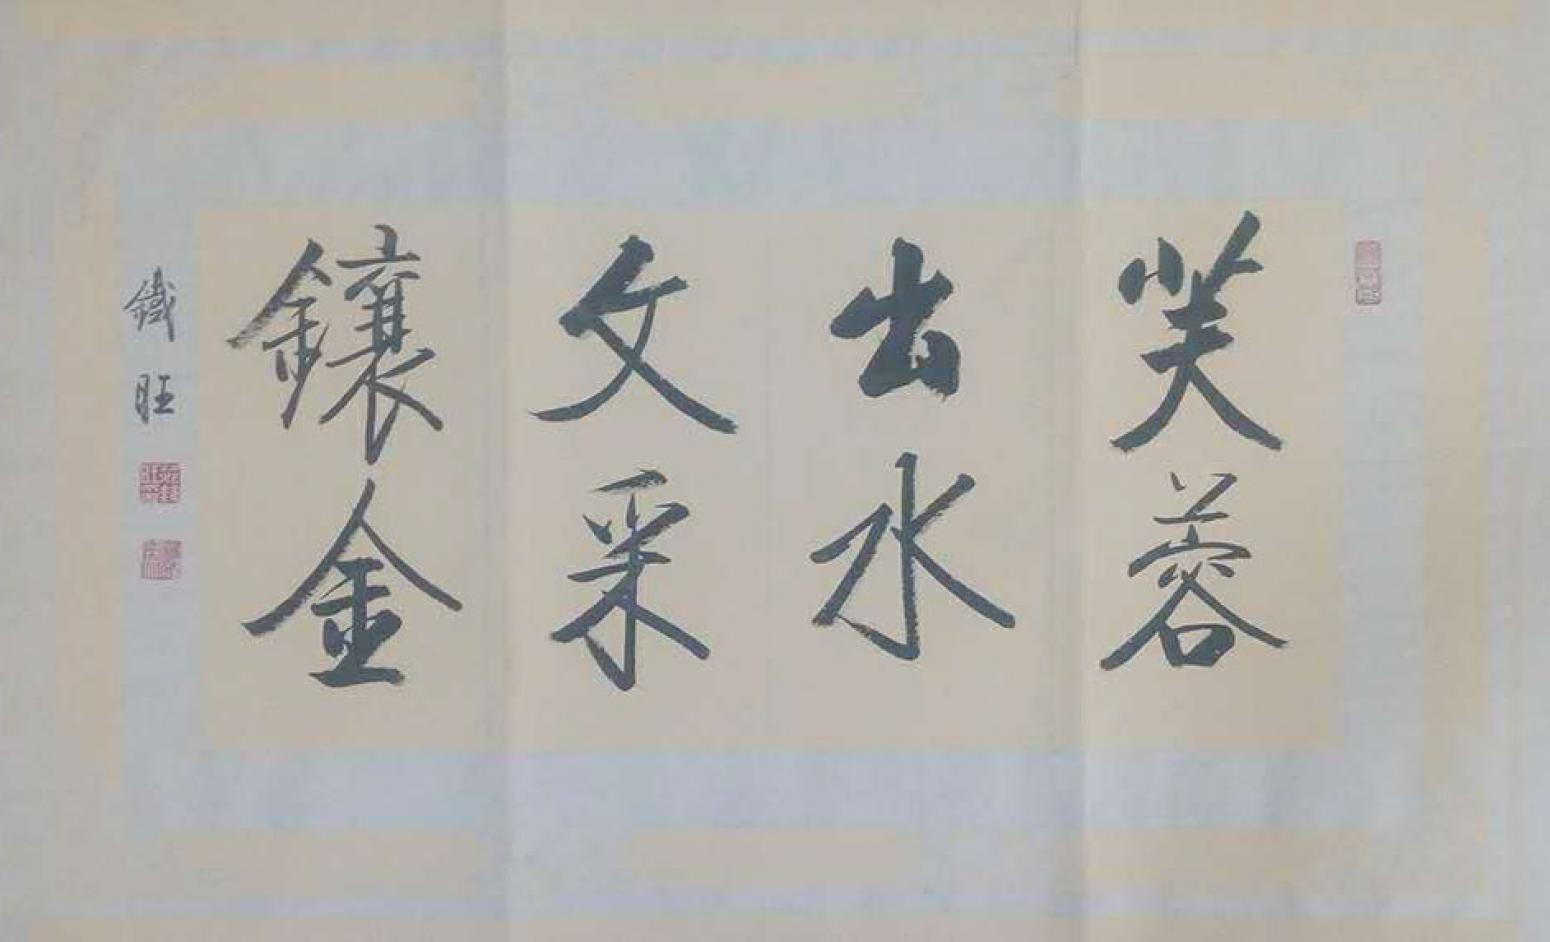 芙蓉
出水
文采
鑲金
鐵旺